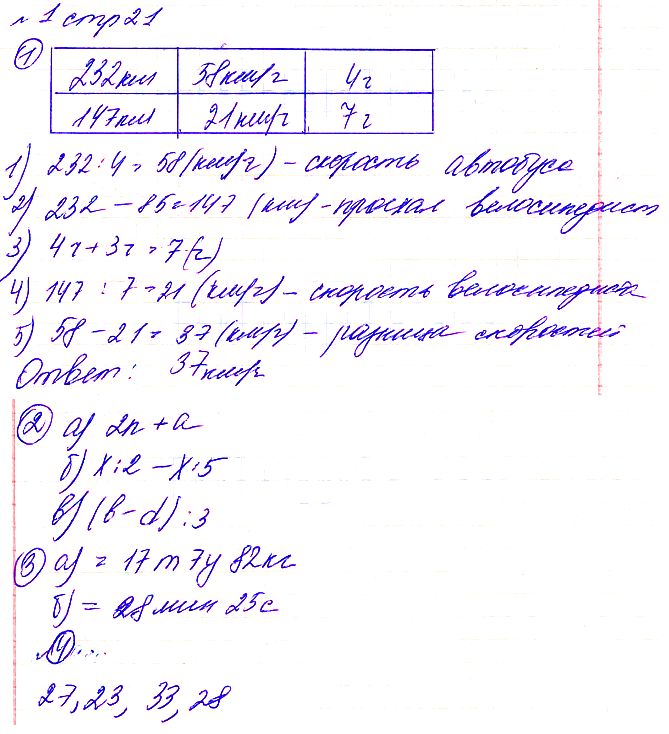 №1 стр21
1
232км 58км/г 4г
147км 21км/г 7г
1) 232:4=58(км/г) – скорость автобуса
2) 232 – 85=147 (км) – проехал велосипедист
3) 4г+3г=7(г)
4) 147 : 7=21 (км/г) – скорость велосипедиста
5) 58 – 21= 37 (км/г) – разница скоростей
Ответ: 37км/г
2 а) 2n + a
б) x:2 – x:5
в) (b–d):3
3 а) = 17т 7ц 82кг
б) = 28мин 25с
№4....
27, 23, 33, 28